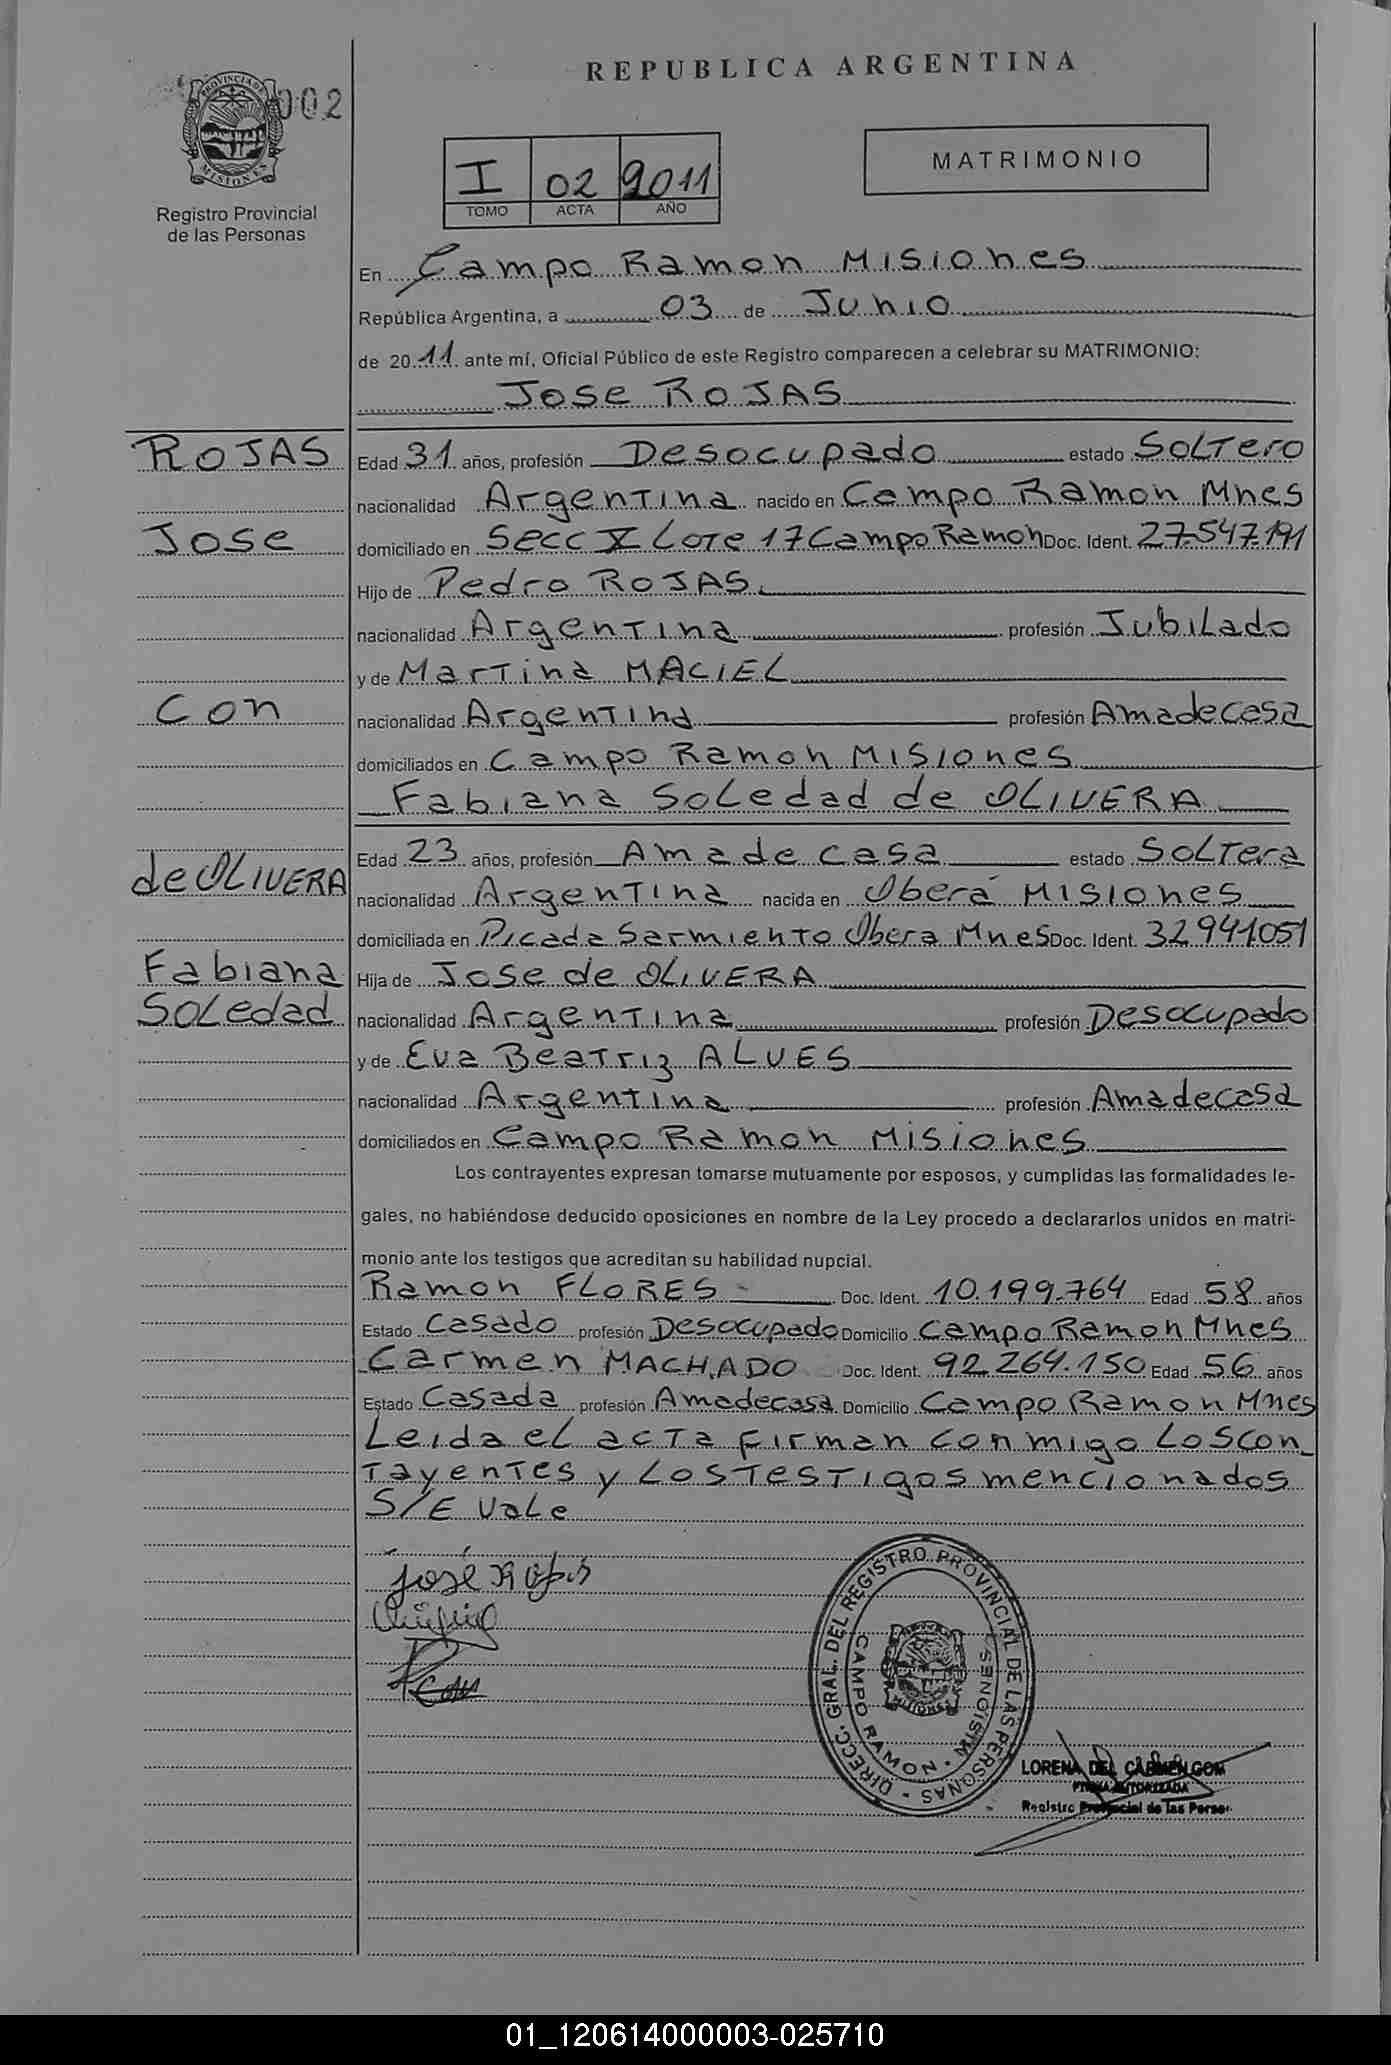 REPUBLICA ARGENTINA
PROVINCIA DE
MISIONES
002
Registro Provincial
de las Personas
I 02 2011
TOMO ACTA AÑO
MATRIMONIO
En Campo Ramon Misiones
República Argentina, a 03 de Junio
de 2011 ante mí, Oficial Público de este Registro comparecen a celebrar su MATRIMONIO:
Jose ROJAS
ROJAS
Jose
Con
de OLIVERA
Fabiana
Soledad
Edad 31 años, profesión Desocupado estado Soltero
nacionalidad Argentina nacido en Campo Ramon Mnes
domiciliado en Secc X Lote 17 Campo Ramon Doc. Ident. 27.547.191
Hijo de Pedro ROJAS
nacionalidad Argentina profesión Jubilado
y de Martina MACIEL
nacionalidad Argentina profesión Ama de casa
domiciliados en Campo Ramon Misiones
Fabiana Soledad de OLIVERA
Edad 23 años, profesión Ama de casa estado Soltera
nacionalidad Argentina nacida en Oberá Misiones
domiciliada en Picada Sarmiento Obera Mnes Doc. Ident. 32.941.051
Hija de Jose de OLIVERA
nacionalidad Argentina profesión Desocupado
y de Eva Beatriz ALVES
nacionalidad Argentina profesión Ama de casa
domiciliados en Campo Ramon Misiones
Los contrayentes expresan tomarse mutuamente por esposos, y cumplidas las formalidades le-
gales, no habiéndose deducido oposiciones en nombre de la Ley procedo a declararlos unidos en matri-
monio ante los testigos que acreditan su habilidad nupcial.
Ramon FLORES Doc. Ident. 10.199.764 Edad 58 años
Estado Casado profesión Desocupado Domicilio Campo Ramon Mnes
Carmen MACHADO Doc. Ident. 92.264.150 Edad 56 años
Estado Casada profesión Ama de casa Domicilio Campo Ramon Mnes
Leida el acta firman conmigo los con_
tayentes y los testigos mencionados
S/E Vale
José Rojas
DIRECC. GRAL. DEL REGISTRO PROVINCIAL DE LAS PERSONAS
CAMPO RAMON • MISIONES
MISIONES
LORENA DEL CARMEN GOM
FIRMA AUTORIZADA
Registro Provincial de las Person
01_120614000003-025710